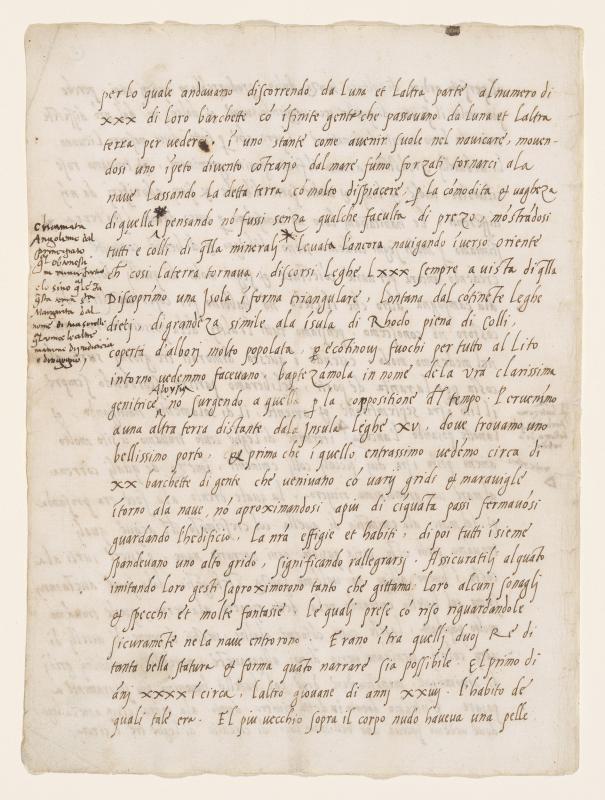 per lo quale andavano discorrendo da luna et laltra parte al numero di
xxx di loro barchette cō īfinite gente che passavano da luna et laltra
terra per vederci. ī uno stante come avenir suole nel navicare, moven-
dosi uno īpeto di vento cōtrario dal mare fūmo forzati tornarci a la
nave lassando la detta terra cō molto dispiacere, p̱ la cōmodita & vagheza
di quella pensando nō fussi senza qualche faculta di prezo, mōstrādosi
tutti e colli di q̄lla minerali * levata lancora navigando īverso oriente
ch̄ cosi la terra tornava, discorsi leghe Lxxx sempre a vista di q̄lla
Discoprimo una Isola ī forma triangulare, lontana dal cōtinēte leghe
dieci, di grandeza simile a la isula di Rhodo piena di colli,
coperta d'albori molto popolata, p̱ e cōtinovi fuochi per tutto al lito
intorno vedemmo facevano. baptezāmola in nome de la vr̄a clarissima
Aloysia
genitrice nō surgendo a quella p̱ la oppositione d̄l tempo. Pervenīmo
a una altra terra distante da la Insula leghe xv, dove trovamo uno
bellissimo porto, & prima che ī quello entrassimo vedēmo circa di
xx barchette di gente che venivano cō varij gridi & maraviglie
ītorno a la nave, nō aproximandosi a piu di cīquāta passi fermavōsi
guardando l'hedificio, la nr̄a effigie et habiti. di poi tutti īsieme
spandevano uno alto grido, significando rallegrarsi. Assicuratili alquāto
imitando loro gesti saproximorono tanto che gittāmo loro alcuni sonagli
& specchi et molte fantasie. le quali prese cō riso riguardandole
sicuramēte ne la nave entrorono. Erano ītra quelli duoi Re di
tanta bella statura & forma quāto narrare sia possibile. El primo di
ānj xxxx ī circa, laltro giovane di anni xxiiij. l'habito de
quali tale era. El piu vecchio sopra il corpo nudo haveva una pelle
chiamata
Angoleme dal
principato
Margarita dal
nome di tua sorella